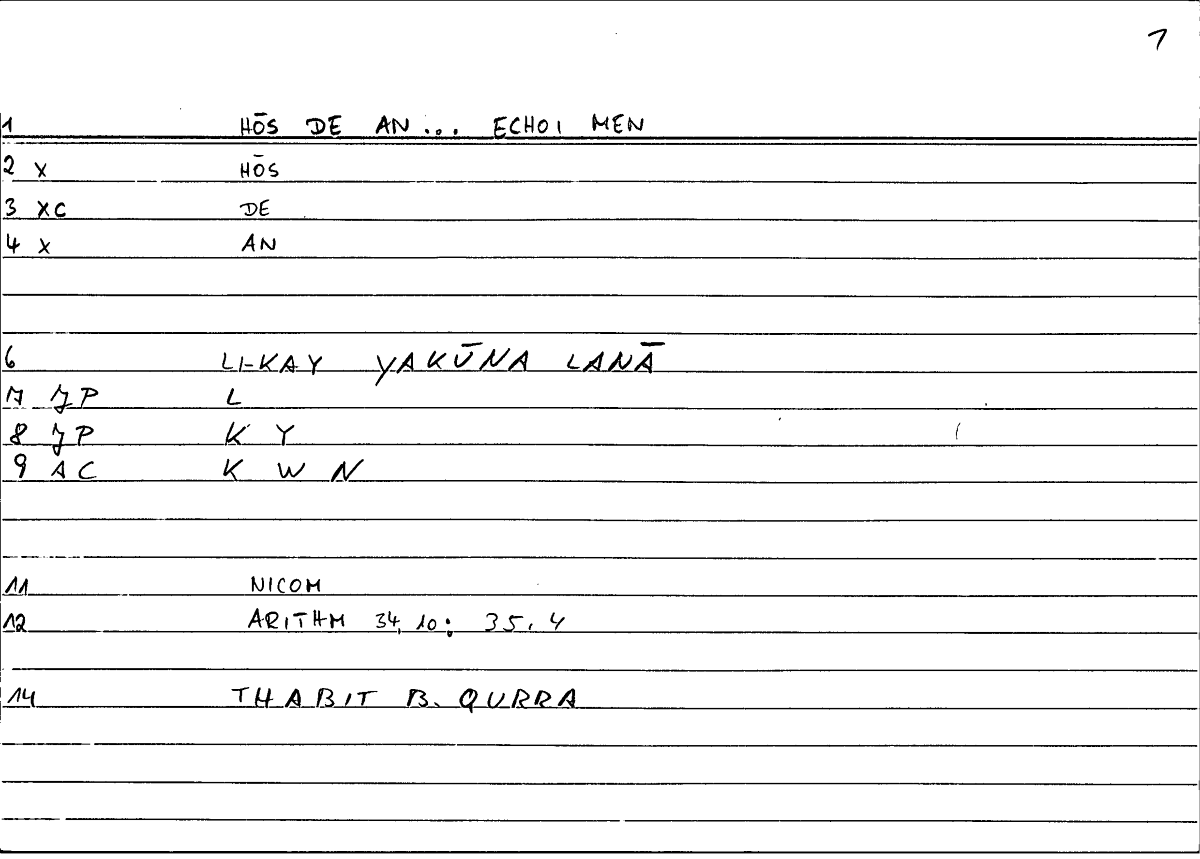 1
1 HŌS DE AN... ECHOI MEN
2 X HŌS
3 XC DE
4 X AN
6 LI-KAY YAKŪNA LANĀ
7 JP L
8 JP K Y
9 AC K W N
11 NICOM
12 ARITHM 34,10: 35.4
14 THABIT B. QURRA